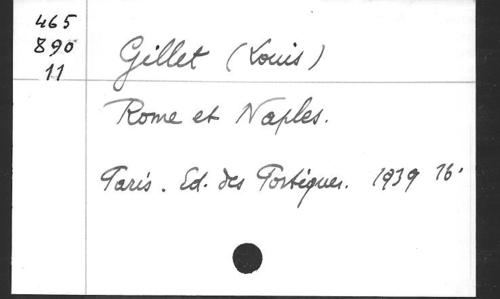 465
890
11
Gillet (Louis)
Rome et Naples.
Paris. Ed. des Portiques. 1939 16°